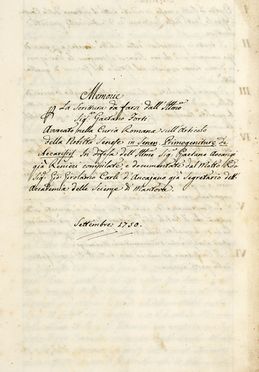 Memorie
La Scrittura da farsi dall' Illmo
Sigr Gaetano Forti
Avvocato nella Curia Romana sull' Articolo
della Nobiltà Senese in Senen Primogeniture de
Accarisij In difesa dell' Illmo Sigr Gaetano Accarigi
già compilate, e documentate dal Molto Rdo
Sigr Girolamo Carli d' Ancajano già Segretario dell'
Accademia delle Scienze di Mantova
Settembre 1750.